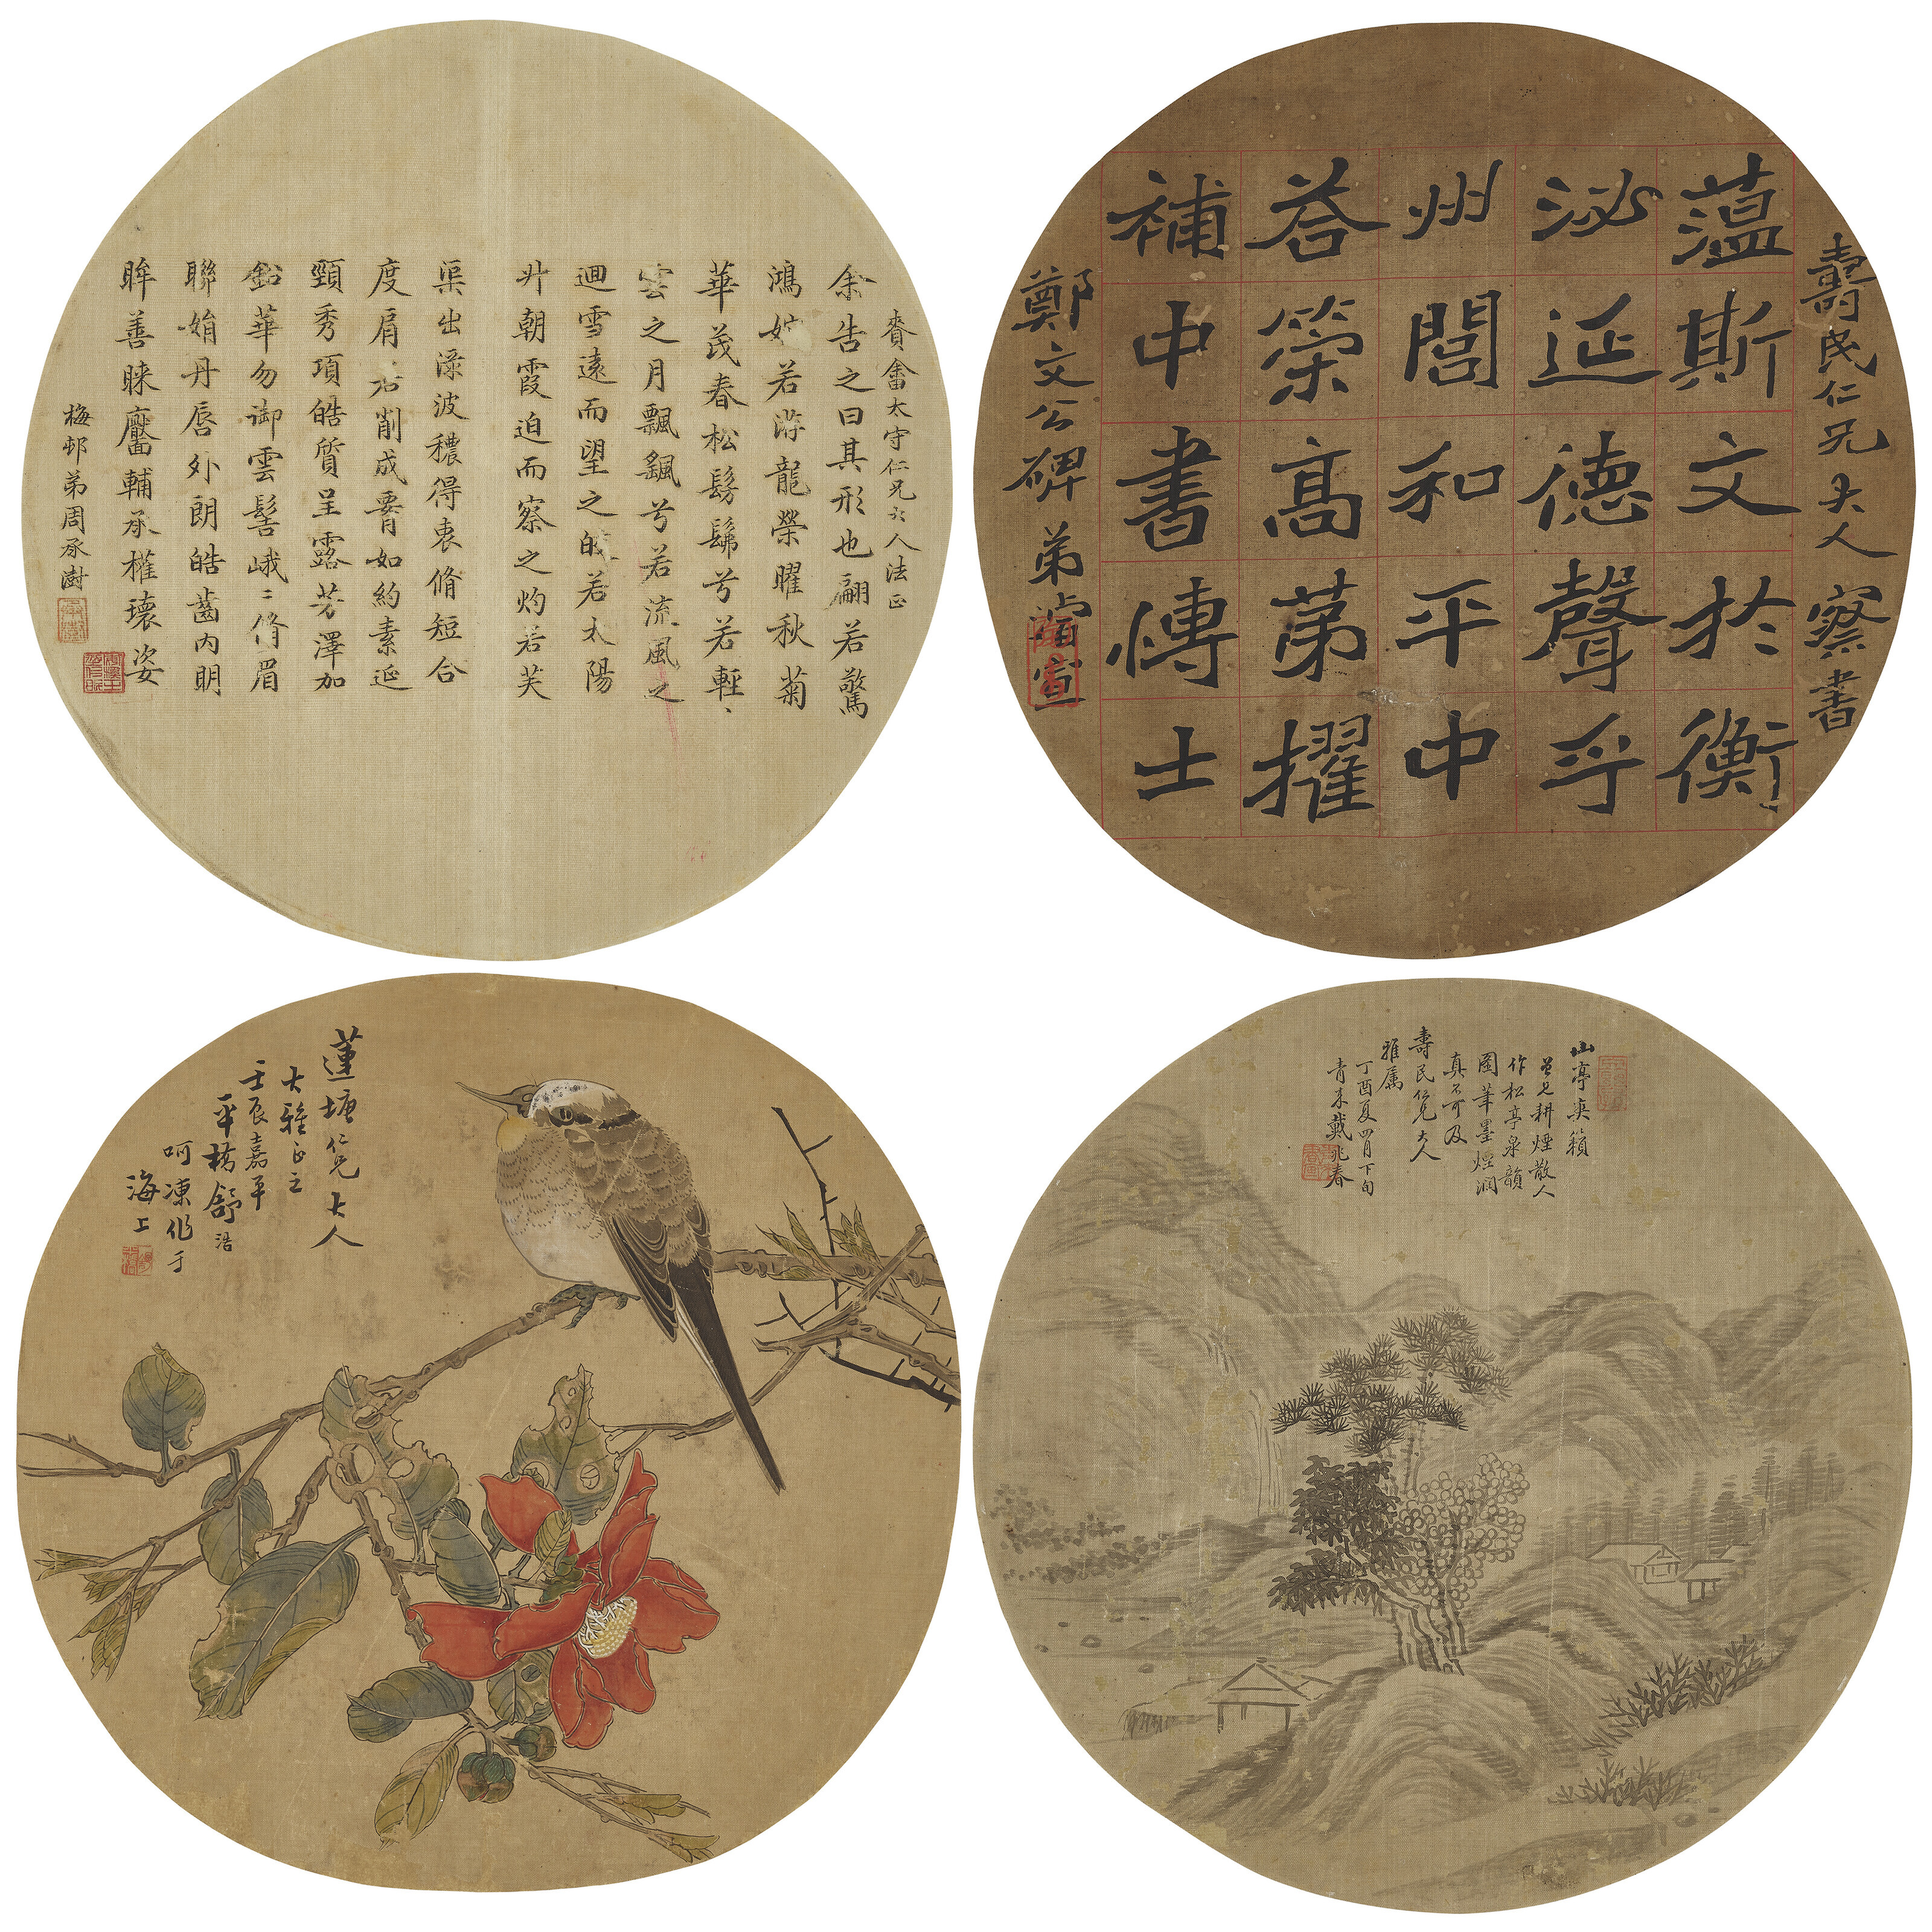 賚畬太守仁兄大人法正
余告之曰其形也翩若驚
鴻婉若游龍榮曜秋菊
華茂春松髣髴兮若輕
雲之月飄颻兮若流風之
迴雪遠而望之皎若太陽
升朝霞迫而察之灼若芙
渠出淥波穠得衷脩短合
度肩若削成要如約素延
頸秀項皓質呈露芳澤加
鉛華勿御雲髻峨〻脩眉
聯娟丹唇外朗皓齒內朙
眸善睞靨輔承權瓌姿
梅邨弟周承澍
壽民仁兄大人察書
薀斯文於衡
泌延德聲乎
州閭和平中
荅策高苐擢
補中書博士
鄭文公碑 弟濬宣
蓮塘仁兄大人
大雅正之
壬辰嘉平
平橋舒浩
呵凍作于
海上
山亭爽籟
曾見耕煙散人
作松亭泉韻
圖筆墨煙潤
真不可及
壽民仁兄大人
雅属
丁酉夏四月下旬
青來戴兆春